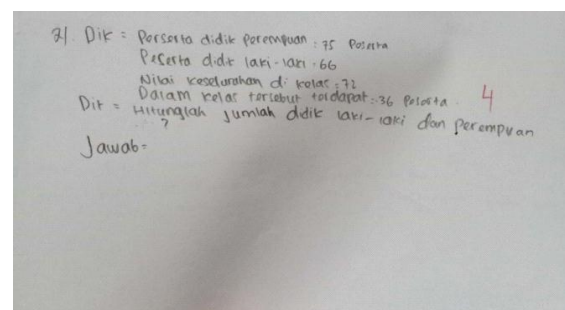 2/. Dik = Perserta didik perempuan : 75 Peserta
Peserta didik laki-laki : 66
Nilai keselurahan di kelas : 72
Dalam kelas tersebut terdapat : 36 Peserta. 4
Dit = Hitunglah jumlah didik laki-laki dan perempuan
....?
Jawab =